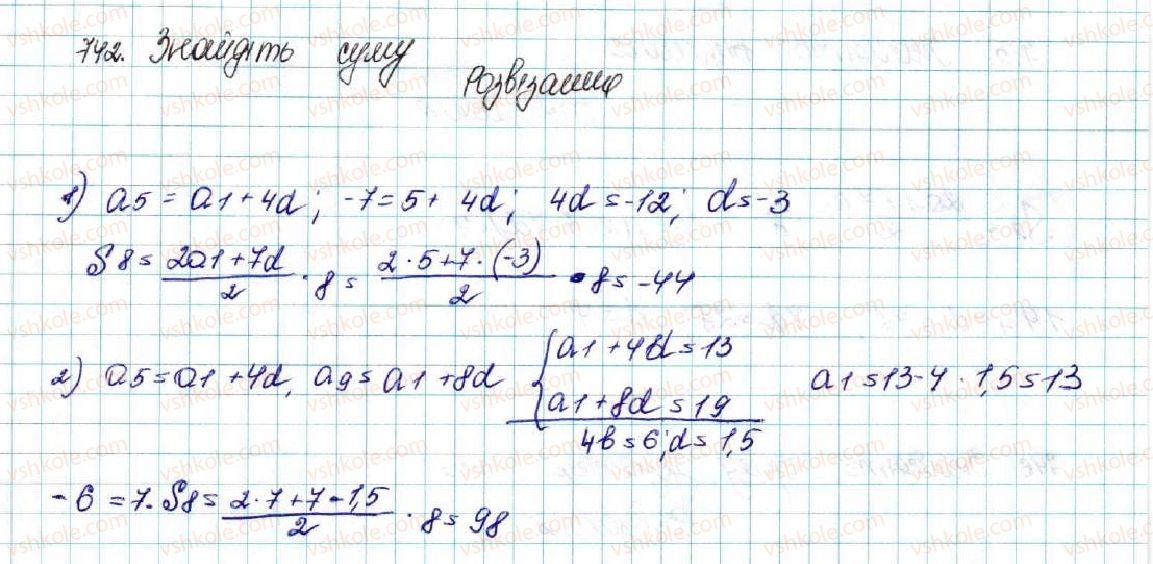 742. Знайдіть суму
Розвізання
1) a5 = a1 + 4d; -7 = 5 + 4d; 4d = -12; d = -3
S8 = (2a1 + 7d)/2 · 8 = (2·5 + 7·(-3))/2 · 8 = -44
2) a5 = a1 + 4d, a9 = a1 + 8d { a1 + 4d = 13
a1 + 8d = 19
4b = 6; d = 1,5
a1 = 13 - 4 · 1,5 = 13
- 6 = 7. S8 = (2·7 + 7 - 1,5)/2 · 8 = 98